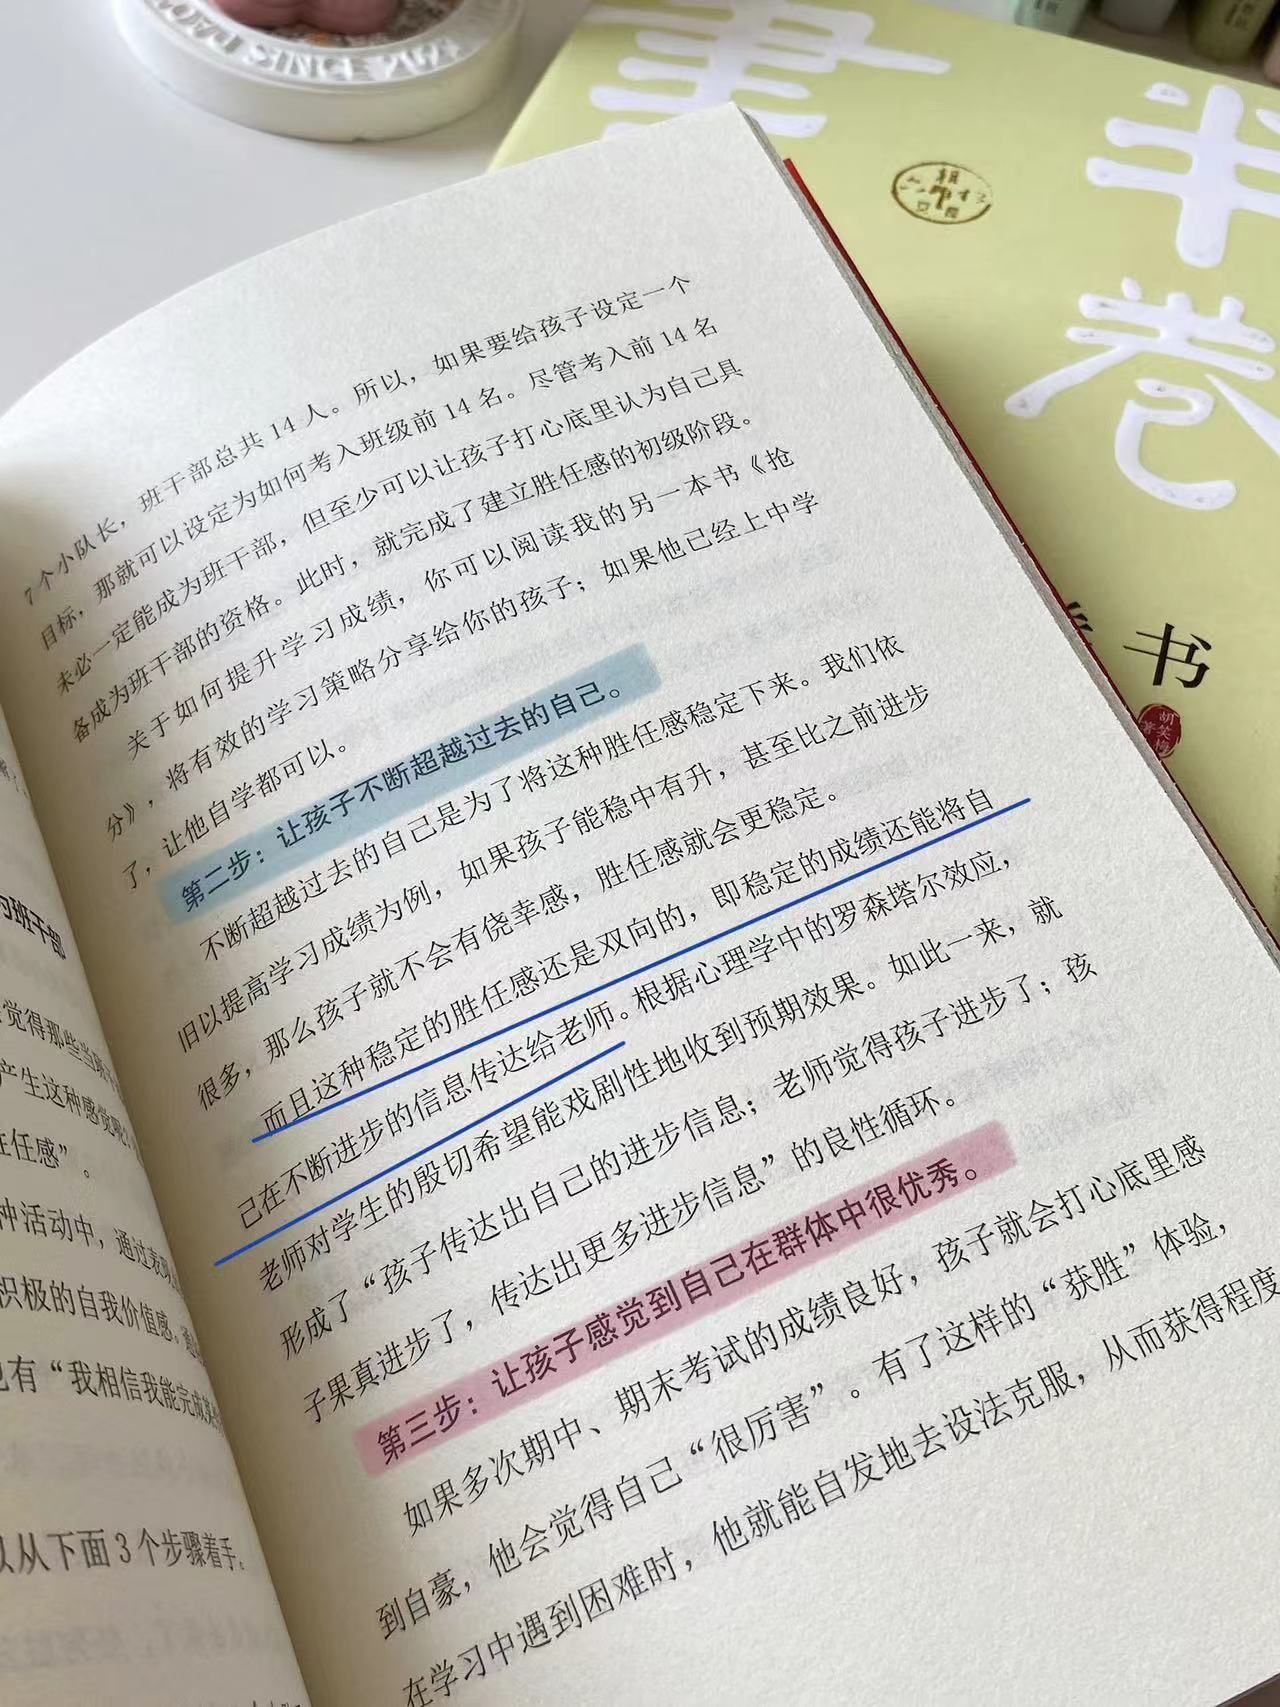 7个小队长，班干部总共14人。所以，如果要给孩子设定一个
目标，那就可以设定为如何考入班级前14名。尽管考入前14名
未必一定能成为班干部，但至少可以让孩子打心底里认为自己具
备成为班干部的资格。此时，就完成了建立胜任感的初级阶段。
关于如何提升学习成绩，你可以阅读我的另一本书《抢
分》，将有效的学习策略分享给你的孩子；如果他已经上中学
了，让他自学都可以。
第二步：让孩子不断超越过去的自己。
不断超越过去的自己是为了将这种胜任感稳定下来。我们依
旧以提高学习成绩为例，如果孩子能稳中有升，甚至比之前进步
很多，那么孩子就不会有侥幸感，胜任感就会更稳定。
而且这种稳定的胜任感还是双向的，即稳定的成绩还能将自
己在不断进步的信息传达给老师。根据心理学中的罗森塔尔效应，
老师对学生的殷切希望能戏剧性地收到预期效果。如此一来，就
形成了“孩子传达出自己的进步信息；老师觉得孩子进步了；孩
子果真进步了，传达出更多进步信息”的良性循环。
第三步：让孩子感觉到自己在群体中很优秀。
如果多次期中、期末考试的成绩良好，孩子就会打心底里感
到自豪，他会觉得自己“很厉害”。有了这样的“获胜”体验，
在学习中遇到困难时，他就能自发地去设法克服，从而获得程度
为班干部
觉得那些当班
产生这种感觉呢
任感”。
种活动中，通过表现
积极的自我价值感。通
也有“我相信我能完成某
以从下面3个步骤着手。
半
卷
書
书
胡笑梅